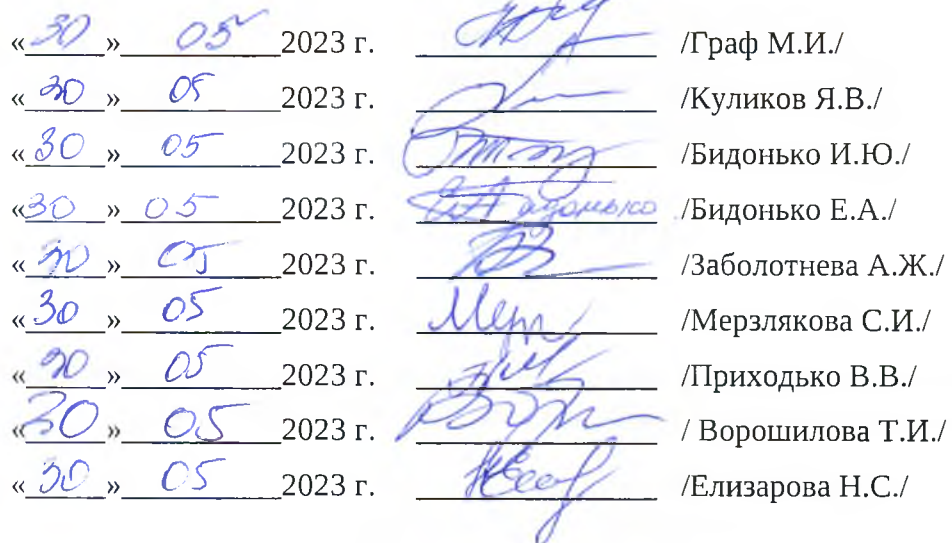 «30» 05 2023 г. /Граф М.И./
«30» 05 2023 г. /Куликов Я.В./
«30» 05 2023 г. /Бидонько И.Ю./
«30» 05 2023 г. /Бидонько Е.А./
«30» 05 2023 г. /Заболотнева А.Ж./
«30» 05 2023 г. /Мерзлякова С.И./
«30» 05 2023 г. /Приходько В.В./
«30» 05 2023 г. / Ворошилова Т.И./
«30» 05 2023 г. /Елизарова Н.С./